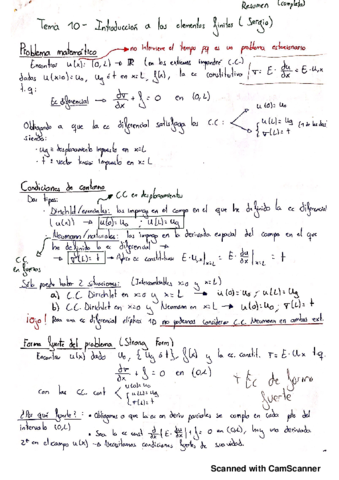 Resumen (completo)
Tema 10 - Introducción a los elementos finitos (Sergio)
Problema matemático → no interviene el tiempo pq es un problema estacionario
Encontrar u(x): [0,L] → ℝ (en los extremos imponder C.C.)
dados u(x=0)=u₀, u_g ó t en x=L, f(x), la ec constitutiva σ = E · du/dx = E·u,x
t.q:
Ec diferencial → dσ/dx + f = 0 en (0,L)
Obligando a que la ec diferencial satisfaga las C.C:
u(0)=u₀
u(L)=u_g
σ(L)=t
siendo:
· u_g = desplazamiento impuesto en x=L
· t = vector tensión impuesto en x=L.
Condiciones de contorno
Dos tipos: C.C en desplazamientos
· Dirichlet/esenciales: las impongo en el campo en el que he definido la ec diferencial
(u(x)) → u(0)=u₀ ; u(L)=u_g
· Neumann/naturales: las impongo en la derivada espacial del campo en el que
he definido la ec diferencial →
C.C. en fuerzas
→ σ(L)=t → Aplico ec constitutiva E·u,x|x=L = E · du/dx|x=L = t
Solo puede haber 2 situaciones: (Intercambiables x=0 y x=L)
a) C.C. Dirichlet en x=0 y x=L → u(0)=u₀ ; u(L)=u_g
b) C.C. Dirichlet en x=0 y Neumann en x=L → u(0)=u₀, σ(L)=t
¡ojo! Para una ec diferencial elíptica 1D no podemos considerar C.C. Neumann en ambos ext.
Forma fuerte del problema (Strong Form)
Encontrar u(x) dado u₀, {u_g ó t}, f(x) y la ec. constit. σ=E·u,x t.q.
dσ/dx + f = 0 en (0,L)
con las C.C cont
u(0)=u₀
u(L)=u_g
σ(L)=t
Ec de forma
fuerte
¿Por qué fuerte?: · Obligamos a que la ec en deriv parciales se cumpla en cada pto del
intervalo (0,L)
· Sea la ec cual d/dx (E · du/dx) + f = 0 en (0,L), hay una derivada
2ª en el campo u(x) → Necesitamos condiciones fuertes de suavidad.
Scanned with CamScanner